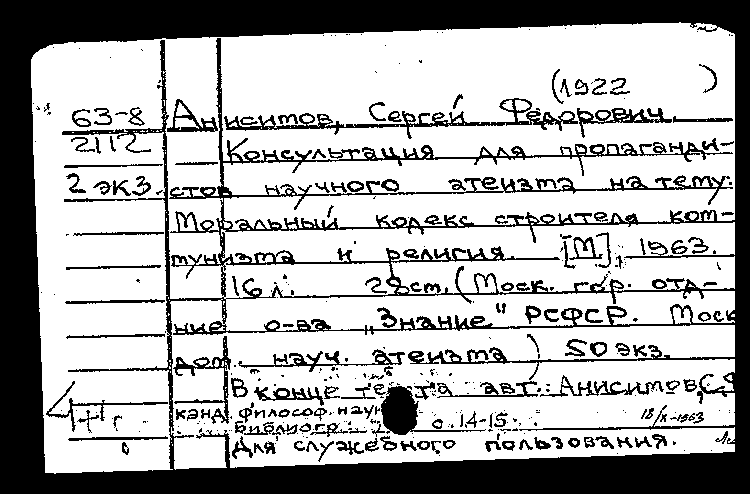 (1922 )
63-8 Анисимов, Сергей Федорович.
2112 Консультация для пропаганди-
2 экз. стов научного атеизма на тему:
Моральный кодекс строителя ком-
мунизма и религия. [М.], 1963.
16 л. 28 см. (Моск. гор. отд-
ние о-ва „Знание" РСФСР. Моск
дом науч. атеизма) 50 экз.
В конце текста авт.: Анисимов, С.Ф
канд. философ. наук
Библиогр.: с. 14-15. 18/X-1963
Для служебного пользования.